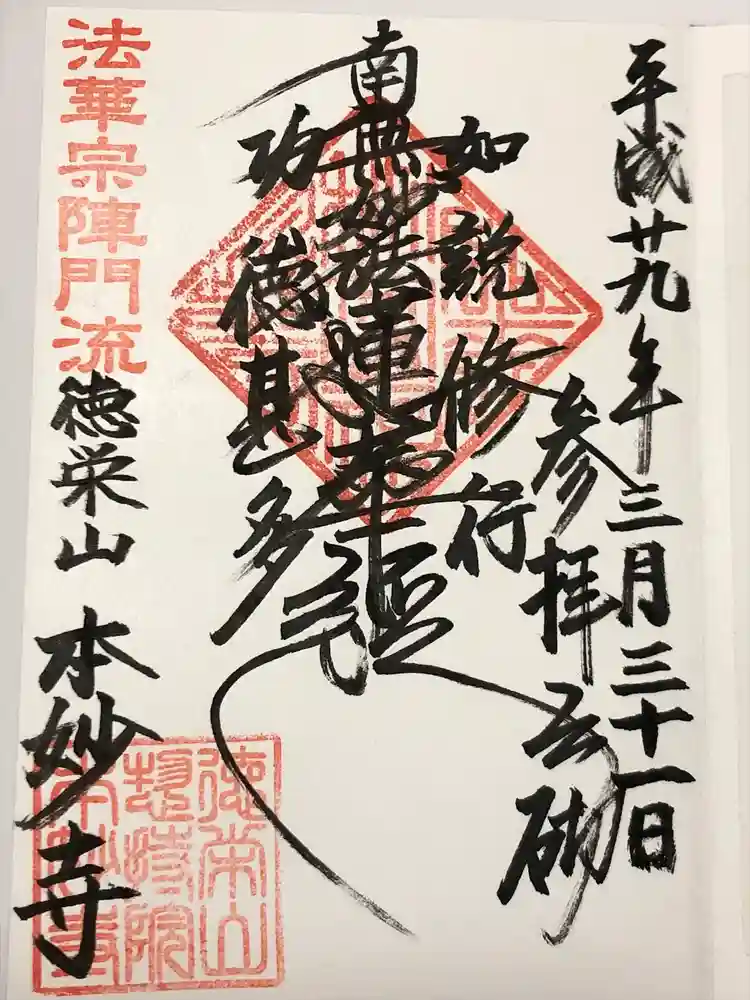 平成廿九年三月三十一日
参拝玄礎
如説修行
南無妙法蓮華経
功徳甚多
法華宗陣門流
徳栄山
本妙寺
徳栄山
惣持院
本妙寺